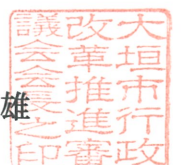 雄
大垣市行政
改革推進審
議会会長之印